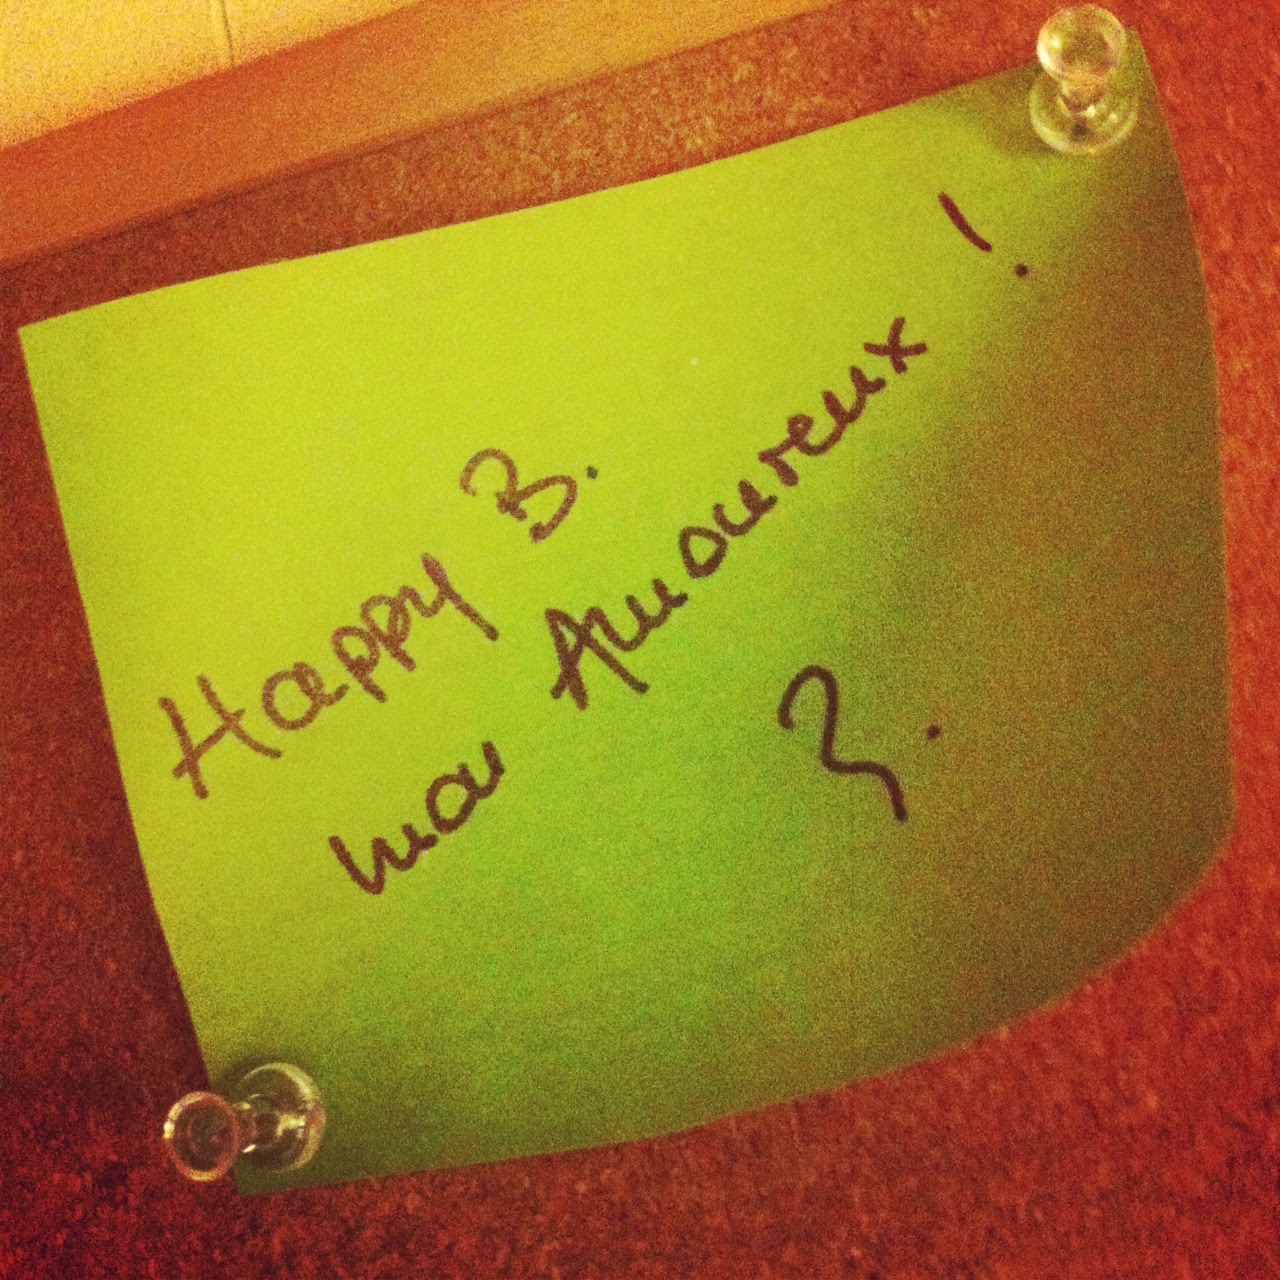 Happy B.
mon Amoureux !